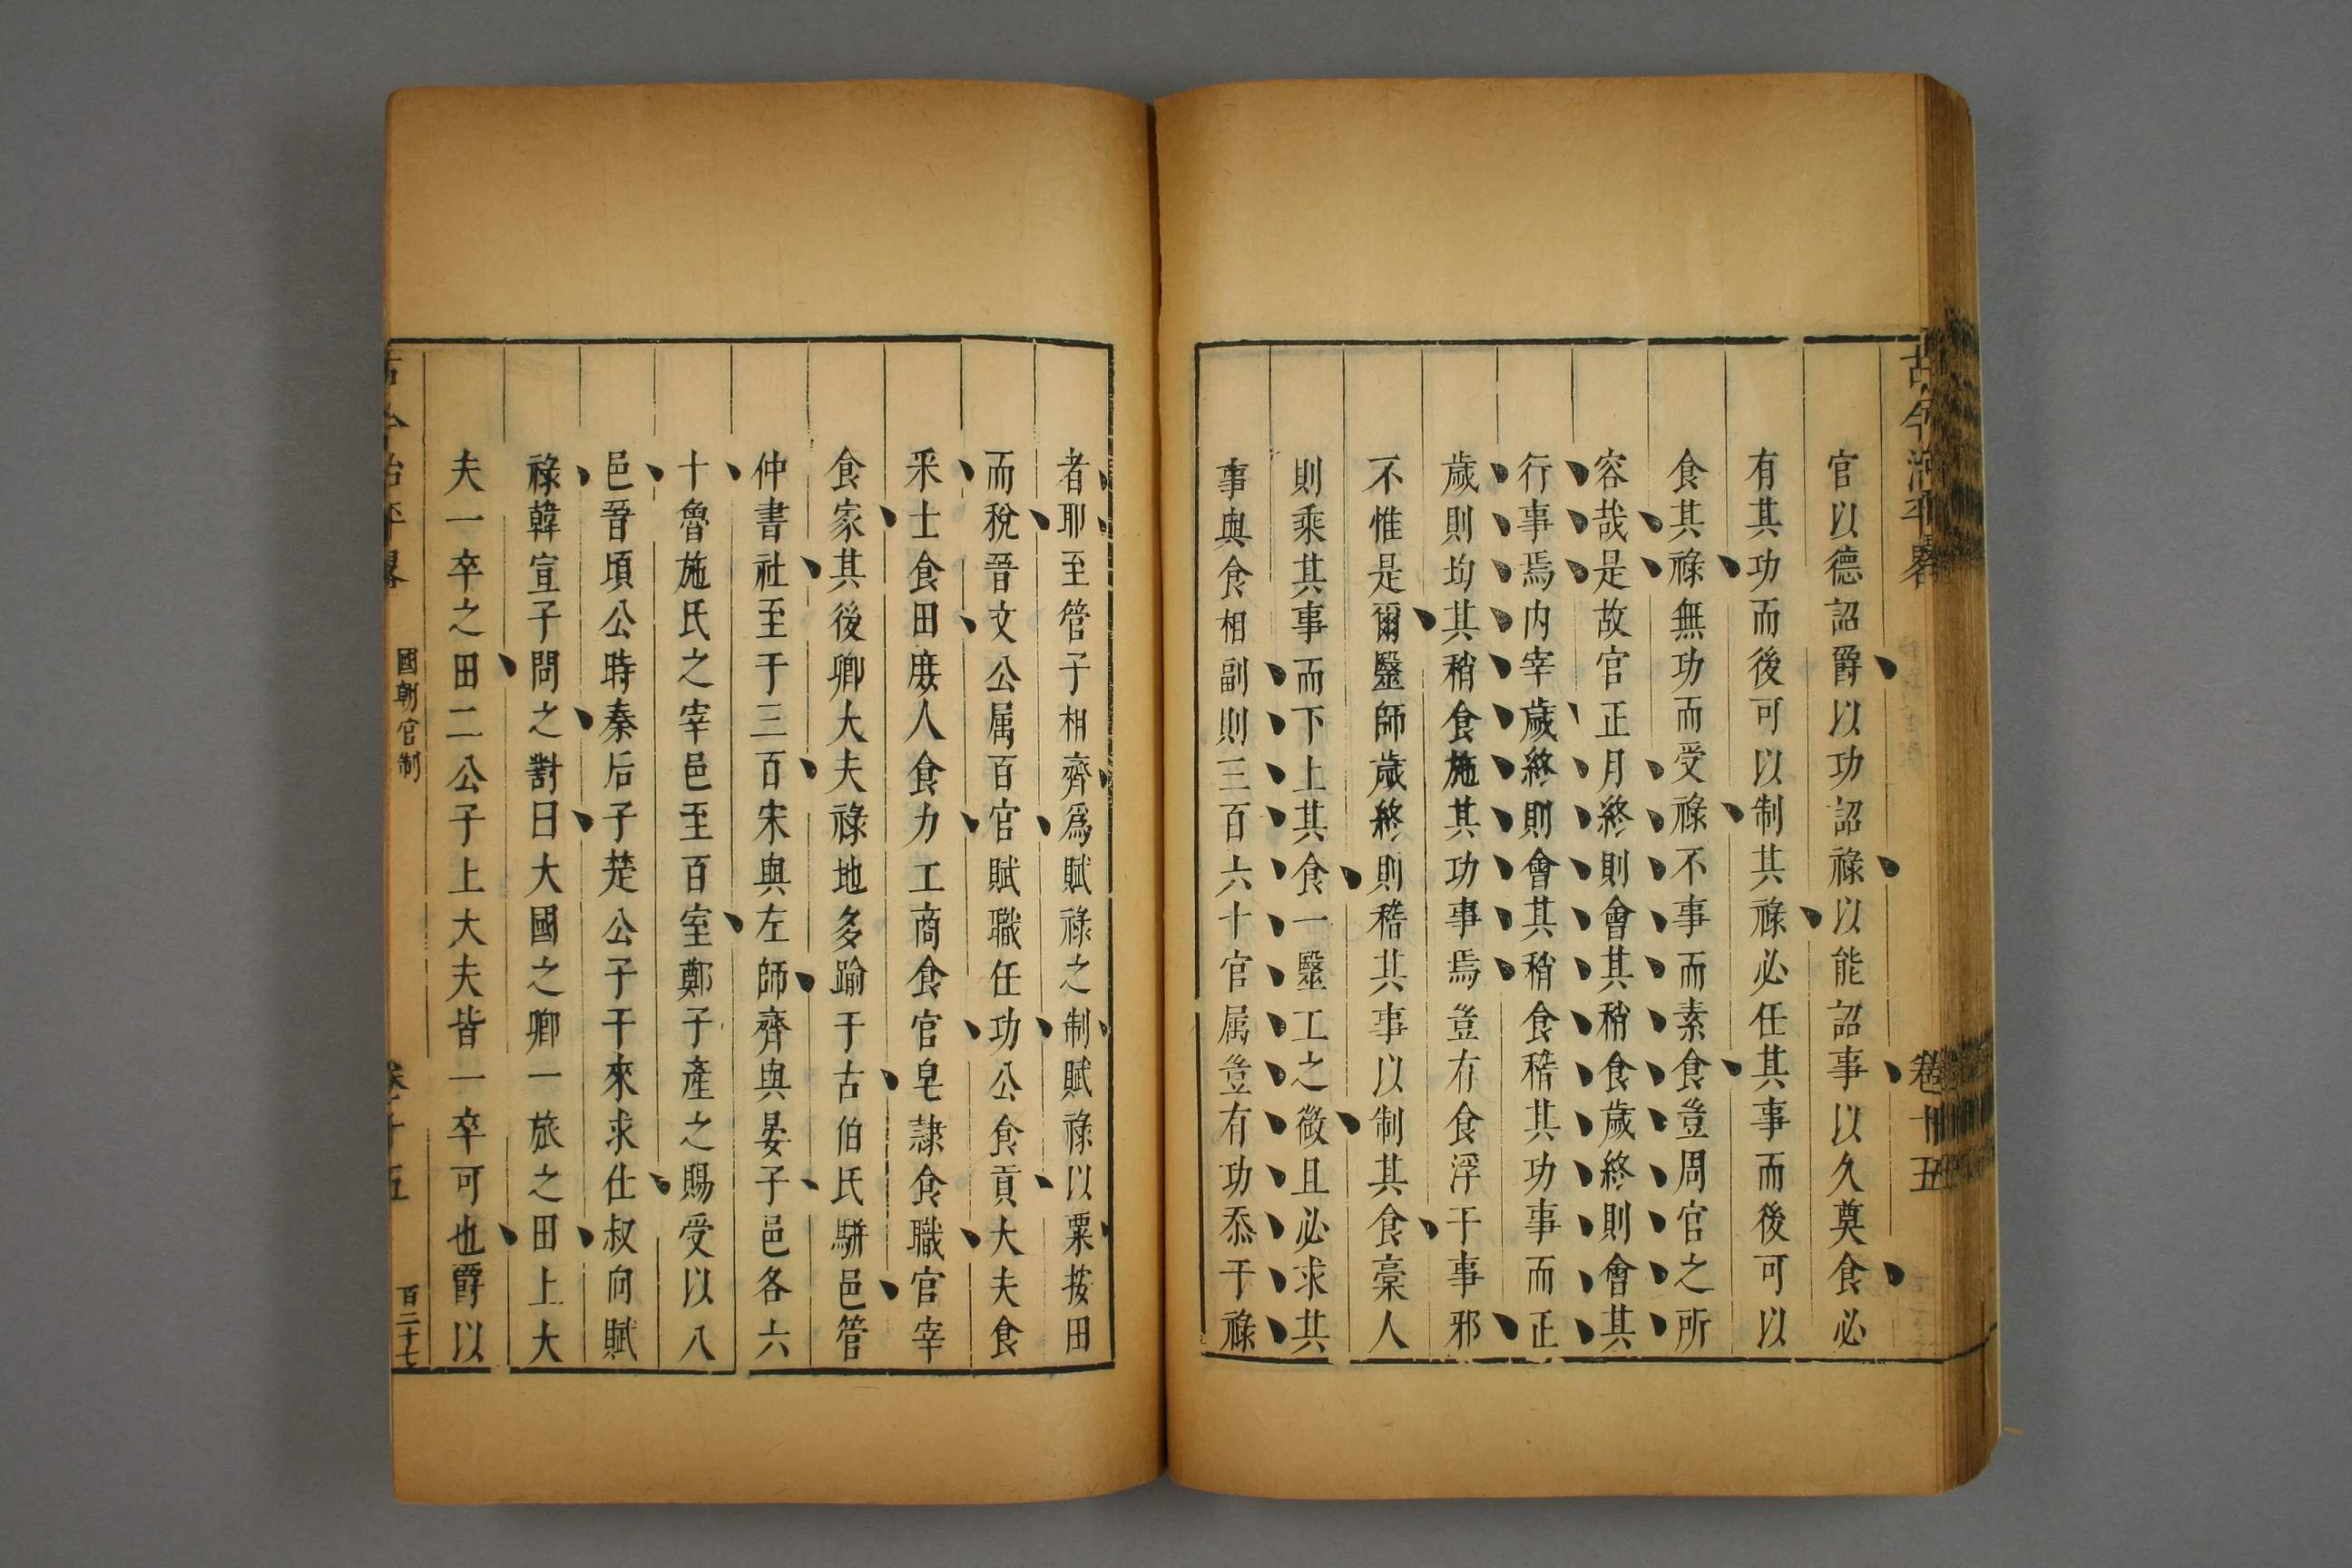 古今治平畧
卷十五
官以德詔爵以功詔祿以能詔事以久奠食必
有其功而後可以制其祿必任其事而後可以
食其祿無功而受祿不事而素食豈周官之所
容哉是故官正月終則會其稍食歲終則會其
行事焉内宰歲終則會其稍食稽其功事而正
歲則均其稍食施其功事焉豈有食浮于事邪
不惟是爾毉師歲終則稽其事以制其食槀人
則乘其事而下上其食一毉工之微且必求其
事與食相副則三百六十官属豈有功忝于祿
者耶至管子相齊爲賦祿之制賦祿以粟按田
而稅晉文公属百官賦職任功公食貢大夫食
釆士食田庻人食力工商食官皂隷食職官宰
食家其後卿大夫祿地多踰于古伯氏駢邑管
仲書社至于三百宋與左師齊與晏子邑各六
十魯施氏之宰邑至百室鄭子產之賜受以八
邑晉頃公時秦后子楚公子干來求仕叔向賦
祿韓宣子問之對曰大國之卿一旅之田上大
夫一卒之田二公子上大夫皆一卒可也爵以
古今治平畧
國朝官制
卷十五
百二十七